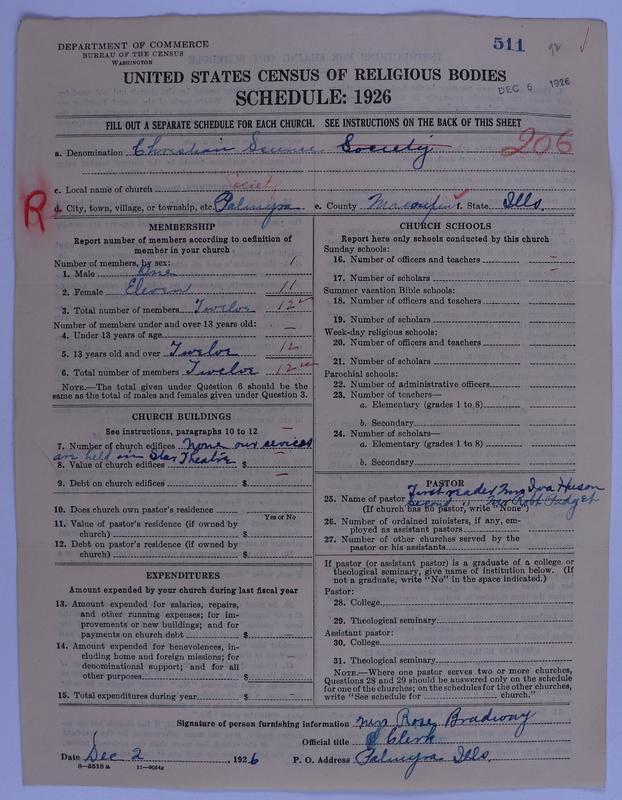 DEPARTMENT OF COMMERCE
BUREAU OF THE CENSUS
WASHINGTON
511
92
DEC 6 1926
UNITED STATES CENSUS OF RELIGIOUS BODIES
SCHEDULE: 1926
FILL OUT A SEPARATE SCHEDULE FOR EACH CHURCH. SEE INSTRUCTIONS ON THE BACK OF THIS SHEET
206
a. Denomination Christian Science Society
c. Local name of church Society
R
d. City, town, village, or township, etc. Palmyra e. County Macoupin f. State Ills.
MEMBERSHIP
Report number of members according to definition of
member in your church
Number of members, by sex:
1. Male One 1
2. Female Eleven 11
3. Total number of members Twelve 12
Number of members under and over 13 years old:
4. Under 13 years of age —
5. 13 years old and over Twelve 12
6. Total number of members Twelve 12
NOTE.—The total given under Question 6 should be the
same as the total of males and females given under Question 3.
CHURCH BUILDINGS
See instructions, paragraphs 10 to 12
7. Number of church edifices None our services
are held in Star Theatre
8. Value of church edifices $ —
9. Debt on church edifices $ —
10. Does church own pastor's residence
Yes or No
11. Value of pastor's residence (if owned by
church) $
12. Debt on pastor's residence (if owned by
church) $
EXPENDITURES
Amount expended by your church during last fiscal year
13. Amount expended for salaries, repairs,
and other running expenses; for im-
provements or new buildings; and for
payments on church debt $ —
14. Amount expended for benevolences, in-
cluding home and foreign missions; for
denominational support; and for all
other purposes $ —
15. Total expenditures during year $ —
CHURCH SCHOOLS
Report here only schools conducted by this church
Sunday schools:
16. Number of officers and teachers —
17. Number of scholars —
Summer vacation Bible schools:
18. Number of officers and teachers
19. Number of scholars
Week-day religious schools:
20. Number of officers and teachers
21. Number of scholars
Parochial schools:
22. Number of administrative officers
23. Number of teachers—
a. Elementary (grades 1 to 8)
b. Secondary
24. Number of scholars—
a. Elementary (grades 1 to 8)
b. Secondary
PASTOR
First reader Mrs Iva Huson
25. Name of pastor Second " Mrs Robt Padget
(If church has no pastor, write "None")
26. Number of ordained ministers, if any, em-
ployed as assistant pastors
27. Number of other churches served by the
pastor or his assistants
If pastor (or assistant pastor) is a graduate of a college or
theological seminary, give name of institution below. (If
not a graduate, write "No" in the space indicated.)
Pastor:
28. College
29. Theological seminary
Assistant pastor:
30. College
31. Theological seminary
NOTE.—Where one pastor serves two or more churches,
Questions 28 and 29 should be answered only on the schedule
for one of the churches; on the schedules for the other churches,
write "See schedule for church."
Signature of person furnishing information Mrs Rose Bradway
Official title Clerk
Date Dec 2, 1926 P. O. Address Palmyra Ills.
8—5518 a 11—9054a